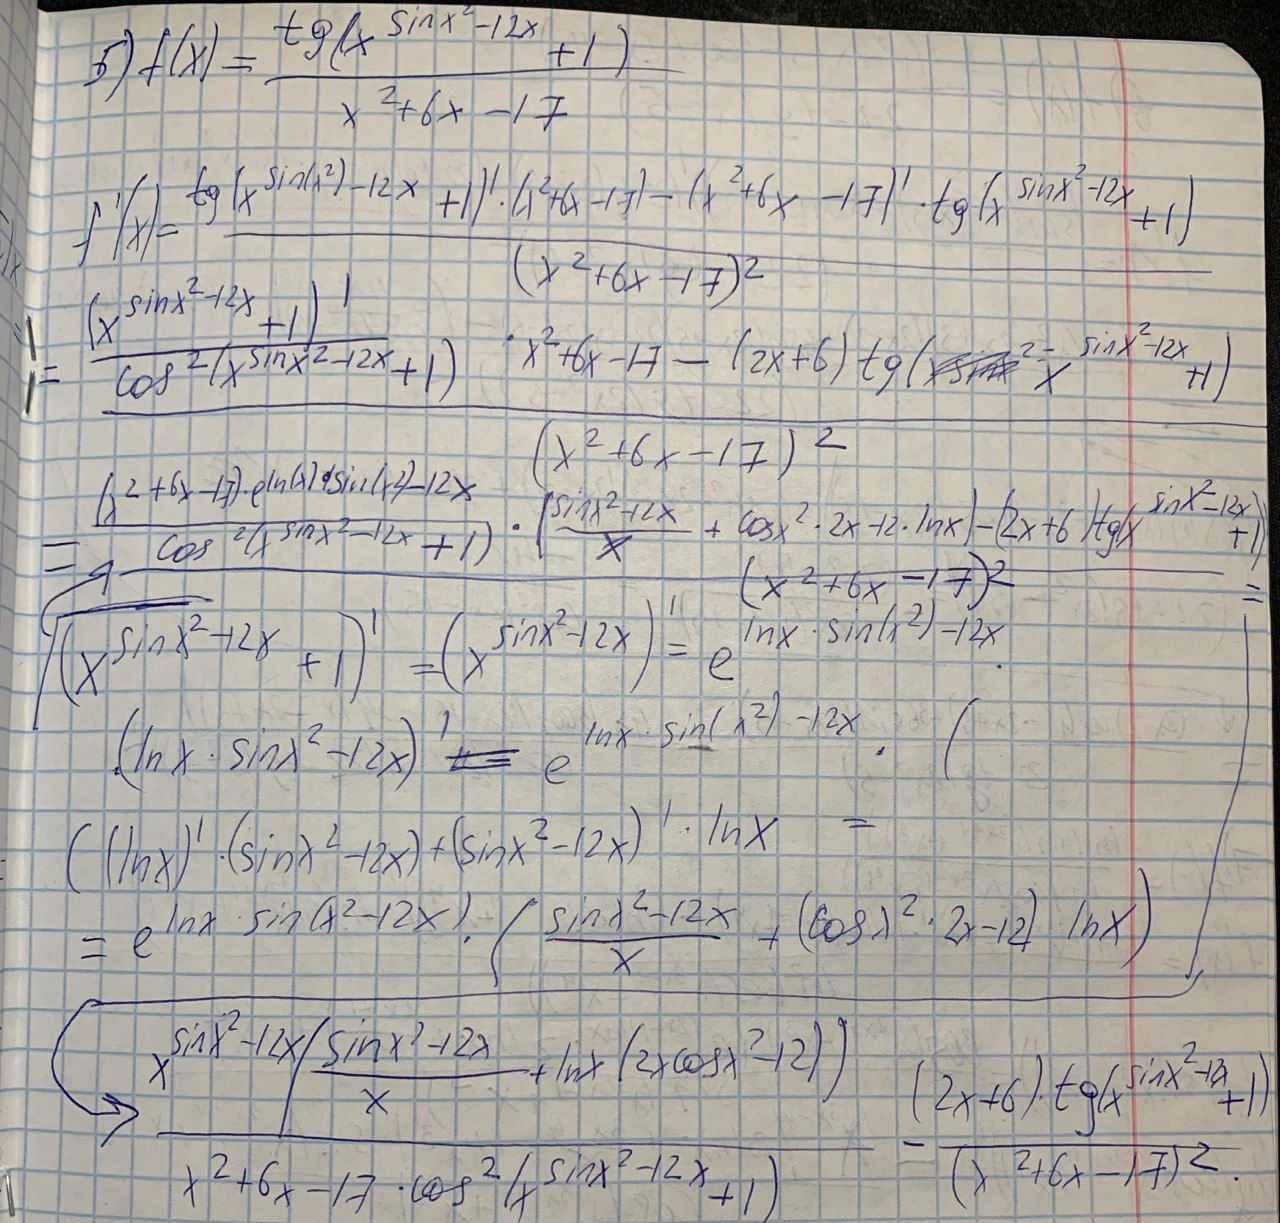 5) f(x) = tg(x^(sinx²-12x) +1) / (x²+6x-17)
f'(x) = (tg(x^(sin(x²)-12x) +1)' · (x²+6x-17) - (x²+6x-17)' · tg(x^(sinx²-12x) +1)) / (x²+6x-17)²
= ((x^(sinx²-12x) +1)' / cos²(x^(sinx²-12x) +1) · x²+6x-17 - (2x+6) tg(x^(sinx²-12x) +1)) / (x²+6x-17)²
= ((x²+6x-17)·e^(ln(x)·sin(x²)-12x) / cos²(x^(sinx²-12x) +1) · (sinx²-12x / x + cosx²·2x-12·lnx) - (2x+6)tg(x^(sinx²-12x) +1)) / (x²+6x-17)² =
(x^(sinx²-12x) +1)' = (x^(sinx²-12x))' = e^(lnx·sin(x²)-12x) ·
·(lnx·sinx²-12x)' = e^(lnx·sin(x²)-12x) · (
((lnx)'·(sinx²-12x)+(sinx²-12x)'·lnx =
= e^(lnx·sin(x²-12x)) · (sinx²-12x / x + (cosx²·2x-12) lnx)
x^(sinx²-12x) (sinx²-12x / x + lnx(2xcosx²-12)) / x²+6x-17·cos²(x^(sinx²-12x) +1) - (2x+6)·tg(x^(sinx²-12x) +1) / (x²+6x-17)².